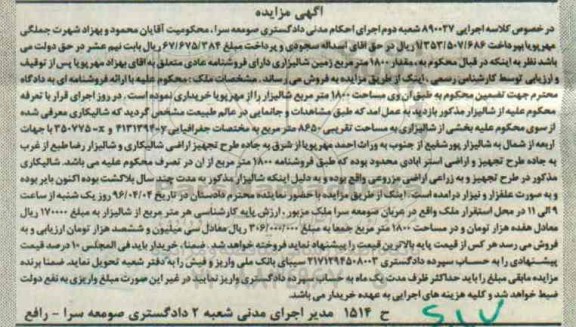 آگهی مزایده
در خصوص کلاسه اجرایی ۸۹۰۰۲۷ شعبه دوم اجرای احکام مدنی دادگستری صومعه سرا، محکومیت آقایان محمود و بهزاد شهرت جملگی
مهرپویا بپرداخت ۱/۳۵۳/۵۰۷/۶۸۶ ریال در حق آقای اسداله سجودی و پرداخت مبلغ ۶۷/۶۷۵/۳۸۴ ریال بابت نیم عشر در حق دولت می
باشد نظر به اینکه در قبال محکوم به، مقدار ۱۸۰۰ متر مربع زمین شالیزاری دارای فروشنامه عادی متعلق به اقای بهزاد مهرپویا پس از توقیف
و ارزیابی توسط کارشناس رسمی، اینک از طریق مزایده به فروش می رساند. مشخصات ملک: محکوم علیه با ارائه فروشنامه ای به دادگاه
محترم جهت تضمین محکوم به طبق آن وی مساحت ۱۸۰۰ متر مربع شالیزار را از مهرپویا خریداری نموده است. در روز اجرای قرار با تعرفه
محکوم علیه از شالیزار مذکور بازدید به عمل آمد که طبق مشاهدات و جانمایی در عالم طبیعت مشخص گردید که شالیکاری معرفی شده
از سوی محکوم علیه بخشی از شالیزاری به مساحت تقریبی ۸۶۵۰ متر مربع به مختصات جغرافیایی ۴۱۳۱۳۹۴=y و ۳۵۰۷۷۵=x با جهات
اربعه از شمال به شالیزار پورشفیع از جنوب به وراث احمد مهرپویا از شرق به جاده طرح تجهیز اراضی شالیکاری و شالیزار رضا طبع از غرب
به جاده طرح تجهیز و اراضی استر ابادی محدود بوده که طبق فروشنامه ۱۸۰۰ متر مربع از ان در تصرف محکوم علیه می باشد. شالیکاری
مذکور در طرح تجهیز و به زراعی اراضی مزروعی واقع بوده و به دلیل اینکه شالیزار مذکور به مدت چند سال بلاکشت بوده اکنون بایر بوده
و به صورت علفزار و نیزار درامده است. اینک از طریق مزایده با حضور نماینده محترم دادستان در تاریخ ۹۶/۰۴/۰۴ روز یک شنبه از ساعت
۹ الی ۱۱ در محل استقرار ملک واقع در عربان صومعه سرا ملک مزبور، ارزش پایه کارشناسی هر متر مربع از شالیزار به مبلغ ۱۷۰۰۰۰ ریال
معادل هفده هزار تومان و در مساحت ۱۸۰۰ متر مربع جمعا به مبلغ ۳۰۶/۰۰۰/۰۰۰ ریال معادل سی میلیون و ششصد هزار تومان ارزیابی و به
فروش می رسد هر کس از قیمت پایه بالاترین قیمت را پیشنهاد نماید فروخته خواهد شد. ضمنا، خریدار باید فی المجلس ۱۰ درصد قیمت
پیشنهادی را به حساب سپرده دادگستری ۲۱۷۱۲۹۴۵۰۸۰۰۳ سیبای بانک ملی واریز و فیش را به دفتر شعبه تحویل نماید. ضمنا برنده
مزایده مابقی مبلغ را باید حداکثر ظرف مدت یک ماه به حساب سپرده دادگستری واریز نمایید در غیر این صورت مبلغ واریزی به نفع دولت
ضبط خواهد شد و کلیه هزینه های اجرایی به عهده خریدار می باشد.
ح ۱۵۱۴ مدیر اجرای مدنی شعبه ۲ دادگستری صومعه سرا - رافع